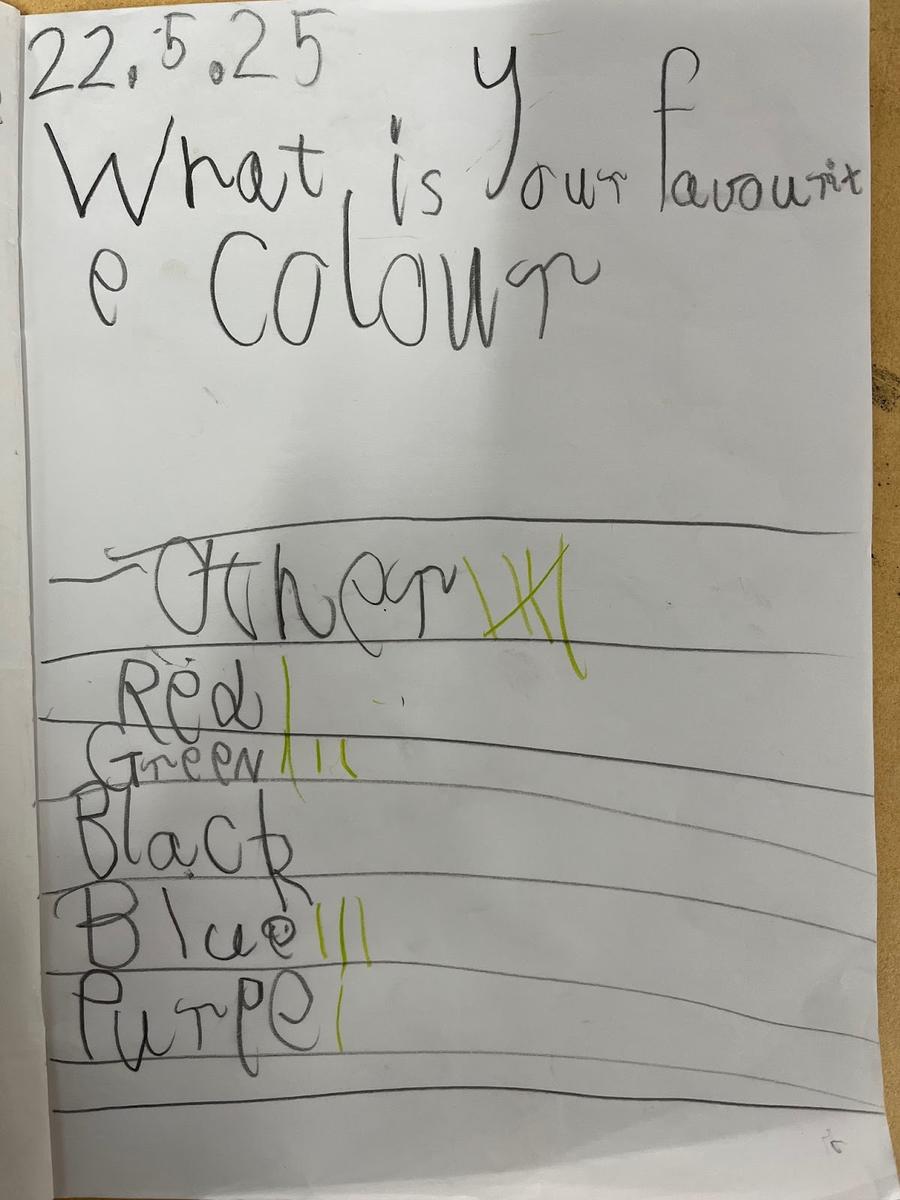 22.5.25
What is your favourit
e Colour
Other
Red
Green
Black
Blue
Purpe